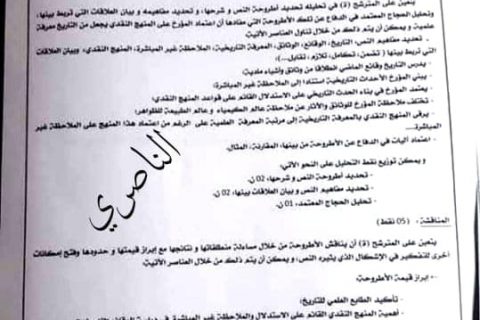 يتعين على المترشح (ة) في تحليله تحديد أطروحة النص و شرحها، و تحديد مفاهيمه و بيان العلاقات التي تربط بينها،
وتحليل الحجاج المعتمد في الدفاع عن تلك الأطروحة التي مفادها أن اعتماد المؤرخ على المنهج النقدي يجعل من التاريخ معرفة
علمية و يمكن أن يتم ذلك من خلال تناول العناصر الآتية:
- تحديد مفاهيم النص: التاريخ، الوقائع، الوثائق، المعرفة التاريخية، الملاحظة غير المباشرة، المنهج النقدي، وبيان العلاقات
التي تربط بينها ( تضمن، تكامل، تلازم، تقابل...)
- يدرس التاريخ وقائع الماضي انطلاقا من وثائق وأشياء مادية؛
- يبني المؤرخ الأحداث التاريخية استنادا إلى الملاحظة غير المباشرة؛
- يعتمد المؤرخ في بناء الحدث التاريخي على الاستدلال القائم على قواعد المنهج النقدي؛
- تختلف ملاحظة المؤرخ للوثائق والآثار عن ملاحظة عالم الكيمياء وعالم الطبيعة للظواهر؛
- يرقى المنهج النقدي بالمعرفة التاريخية إلى مرتبة المعرفة العلمية على الرغم من اعتماد هذا المنهج على الملاحظة غير
المباشرة....
- اعتماد آليات في الدفاع عن الأطروحة من بينها: المقارنة، المثال.
و يمكن توزيع نقط التحليل على النحو الآتي:
- تحديد أطروحة النص و شرحها: 02 ن.
- تحديد مفاهيم النص و بيان العلاقات بينها: 02 ن.
- تحليل الحجاج المعتمد: 01 ن.
الناصري
المناقشة: (05 نقط)
يتعين على المترشح (ة) أن يناقش الأطروحة من خلال مساءلة منطلقاتها و نتائجها مع إبراز قيمتها و حدودها وفتح إمكانات
أخرى للتفكير في الإشكال الذي يثيره النص، و يمكن أن يتم ذلك من خلال العناصر الآتية:
- إبراز قيمة الأطروحة:
- تأكيد الطابع العلمي للتاريخ؛
- أهمية المنهج النقدي القائم على الاستدلال والملاحظة غير المباشرة في